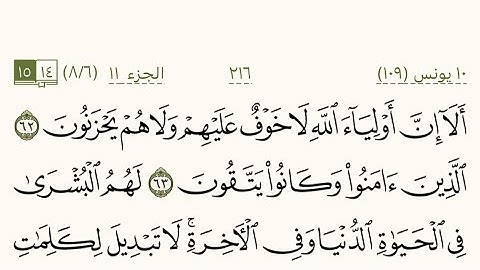 ١٠ يونس (١٠٩) ٢١٦ الجزء ١١ (٨/٦) ١٤ ١٥
أَلَآ إِنَّ أَوْلِيَآءَ ٱللَّهِ لَا خَوْفٌ عَلَيْهِمْ وَلَا هُمْ يَحْزَنُونَ ٦٢
ٱلَّذِينَ ءَامَنُوا۟ وَكَانُوا۟ يَتَّقُونَ ٦٣ لَهُمُ ٱلْبُشْرَىٰ
فِى ٱلْحَيَوٰةِ ٱلدُّنْيَا وَفِى ٱلْـَٔاخِرَةِ ۚ لَا تَبْدِيلَ لِكَلِمَٰتِ